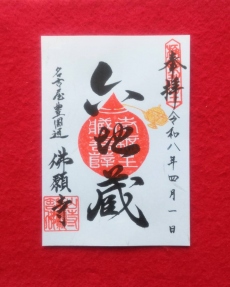 奉拝
令和八年四月一日
六地蔵
名古屋豊国通
佛願寺